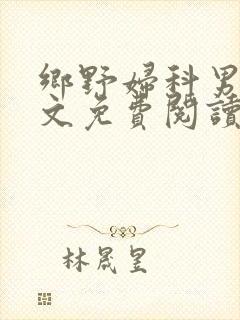 鄉野婦科男
文免費閱讀
林晟呈